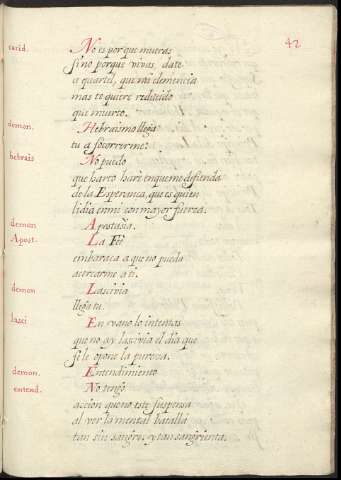 42
carid. No es por que mueras
sino porque vivas, date
a quartel, que mi clemencia
mas te quiere reducido
que muerto.
demon. Hebraismo llega
tu a socorrerme.
hebrais No puedo
que harto hare en que me defienda
de la Esperança, que es quien
lidia en mi con mayor fuerza.
demon Apostasia.
Apost. La Feè
embaraça a que no pueda
acercarme a ti.
demon Lascivia
llega tu.
lasci En vano lo intentas
que no ay lascivia el dia que
se le opone la pureza.
demon. Entendimiento
entend. No tengo
accion que no este suspensa
al ver la mental batalla
tan sin sangre, y tan sangrienta.